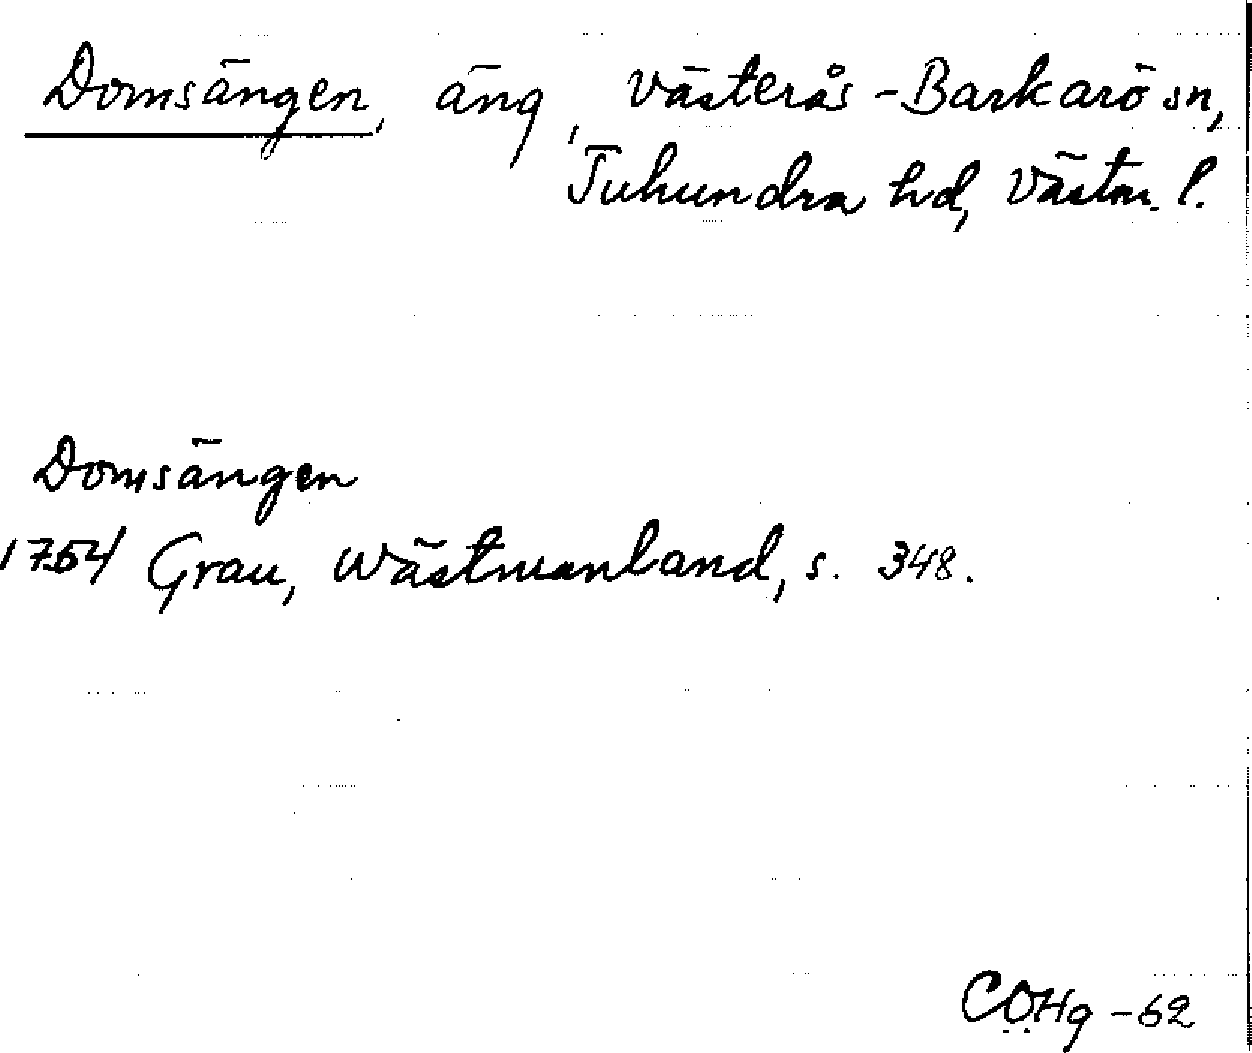 Domsängen, äng, Västerås-Barkarö sn,
Tuhundra hd, Västm. l.
Domsängen
1754 Grau, Wästmanland, s. 348.
COHg -62